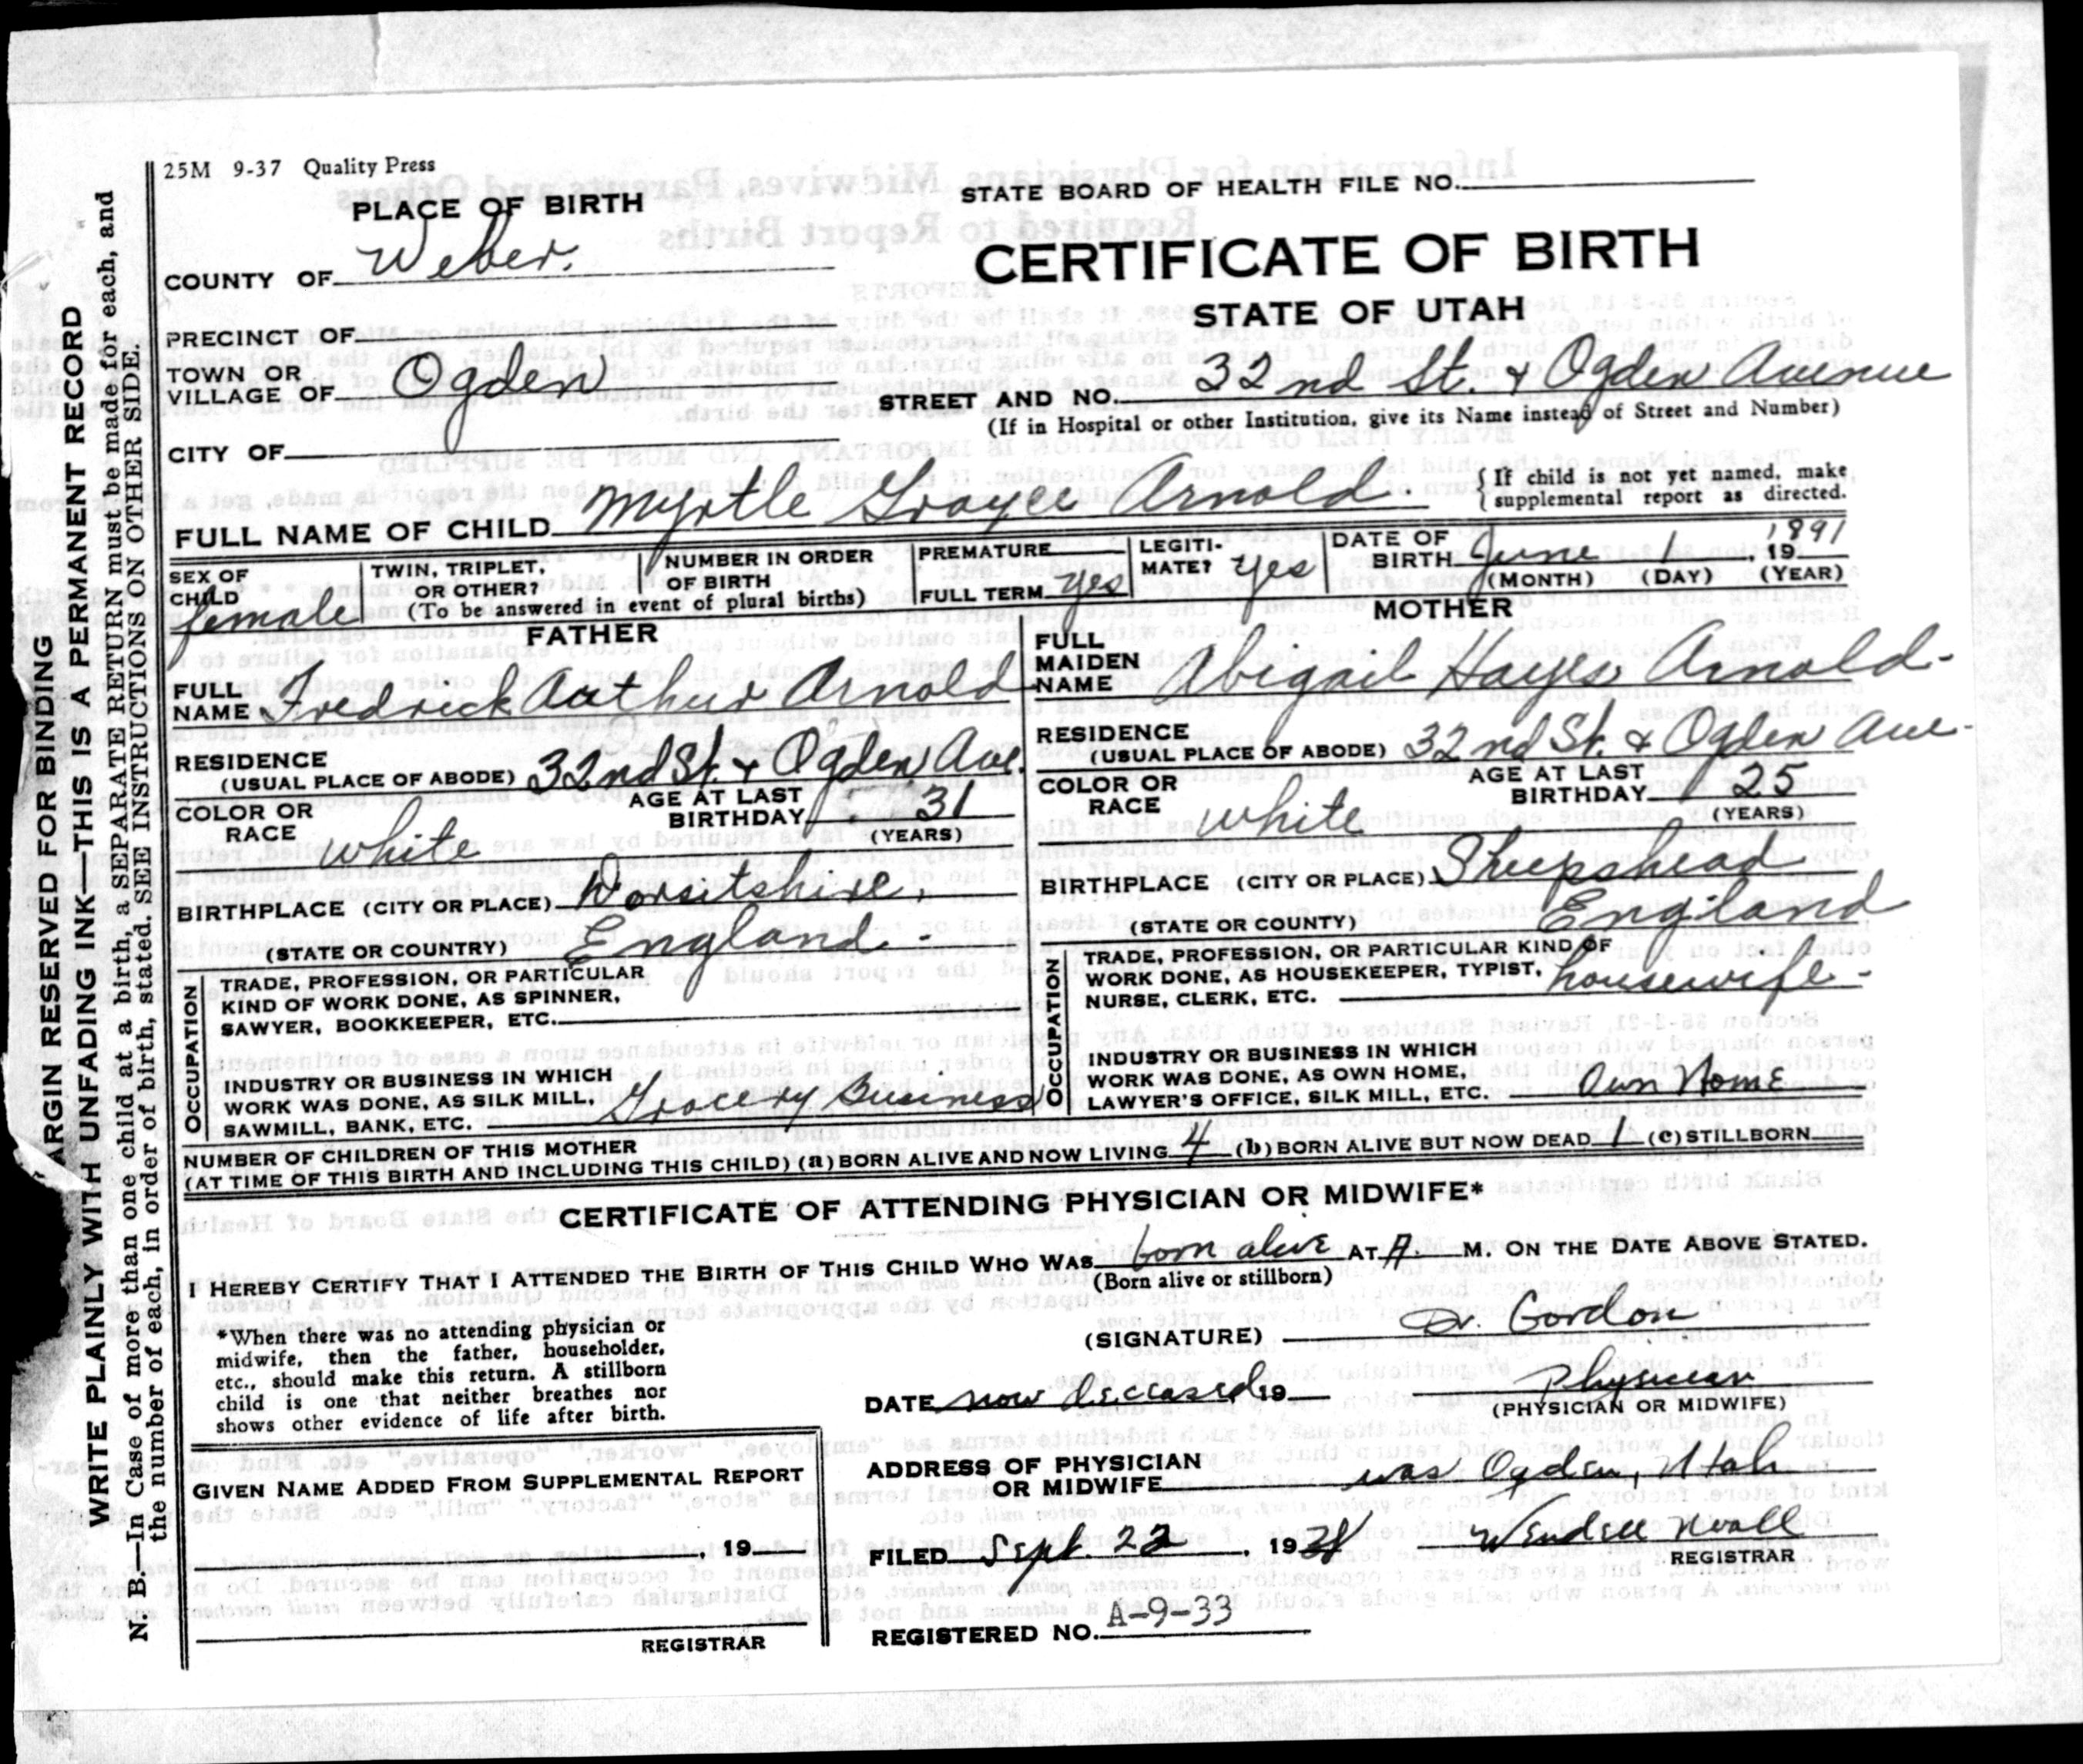 25M 9-37 Quality Press
PLACE OF BIRTH
COUNTY OF Weber.
PRECINCT OF
TOWN OR
VILLAGE OF Ogden
CITY OF
STATE BOARD OF HEALTH FILE NO.
CERTIFICATE OF BIRTH
STATE OF UTAH
STREET AND NO. 32nd St. & Ogden Avenue
(If in Hospital or other Institution, give its Name instead of Street and Number)
FULL NAME OF CHILD Myrtle Grayce Arnold.
{ If child is not yet named, make
supplemental report as directed.
SEX OF
CHILD female
TWIN, TRIPLET,
OR OTHER?
NUMBER IN ORDER
OF BIRTH
(To be answered in event of plural births)
PREMATURE
FULL TERM yes
LEGITI-
MATE? yes
DATE OF
BIRTH June 1, 19 1891
(MONTH) (DAY) (YEAR)
FATHER
FULL
NAME Fredrick Arthur Arnold
RESIDENCE
(USUAL PLACE OF ABODE) 32nd St. & Ogden Ave.
COLOR OR
RACE white
AGE AT LAST
BIRTHDAY 31
(YEARS)
BIRTHPLACE (CITY OR PLACE) Worsitshire.
(STATE OR COUNTRY) England.
OCCUPATION
TRADE, PROFESSION, OR PARTICULAR
KIND OF WORK DONE, AS SPINNER,
SAWYER, BOOKKEEPER, ETC.
INDUSTRY OR BUSINESS IN WHICH
WORK WAS DONE, AS SILK MILL,
SAWMILL, BANK, ETC. Grocery Business
MOTHER
FULL
MAIDEN
NAME Abigail Hayes Arnold-
RESIDENCE
(USUAL PLACE OF ABODE) 32nd St. & Ogden Ave-
COLOR OR
RACE white
AGE AT LAST
BIRTHDAY 25
(YEARS)
BIRTHPLACE (CITY OR PLACE) Sheepshead
(STATE OR COUNTY) England
OCCUPATION
TRADE, PROFESSION, OR PARTICULAR KIND OF
WORK DONE, AS HOUSEKEEPER, TYPIST,
NURSE, CLERK, ETC. housewife-
INDUSTRY OR BUSINESS IN WHICH
WORK WAS DONE, AS OWN HOME,
LAWYER'S OFFICE, SILK MILL, ETC. Own Home
NUMBER OF CHILDREN OF THIS MOTHER
(AT TIME OF THIS BIRTH AND INCLUDING THIS CHILD) (a) BORN ALIVE AND NOW LIVING 4 (b) BORN ALIVE BUT NOW DEAD 1 (c) STILLBORN
CERTIFICATE OF ATTENDING PHYSICIAN OR MIDWIFE*
I HEREBY CERTIFY THAT I ATTENDED THE BIRTH OF THIS CHILD WHO WAS born alive AT A. M. ON THE DATE ABOVE STATED.
(Born alive or stillborn)
*When there was no attending physician or
midwife, then the father, householder,
etc., should make this return. A stillborn
child is one that neither breathes nor
shows other evidence of life after birth.
(SIGNATURE) Dr. Gordon
DATE now deceased 19
Physician
(PHYSICIAN OR MIDWIFE)
ADDRESS OF PHYSICIAN
OR MIDWIFE was Ogden, Utah
GIVEN NAME ADDED FROM SUPPLEMENTAL REPORT
, 19
REGISTRAR
FILED Sept 22, 19
Wendell Noall
REGISTRAR
REGISTERED NO. A-9-33
ARGIN RESERVED FOR BINDING
WRITE PLAINLY WITH UNFADING INK-THIS IS A PERMANENT RECORD
N. B.—In Case of more than one child at a birth, a SEPARATE RETURN must be made for each, and
the number of each, in order of birth, stated. SEE INSTRUCTIONS ON OTHER SIDE.